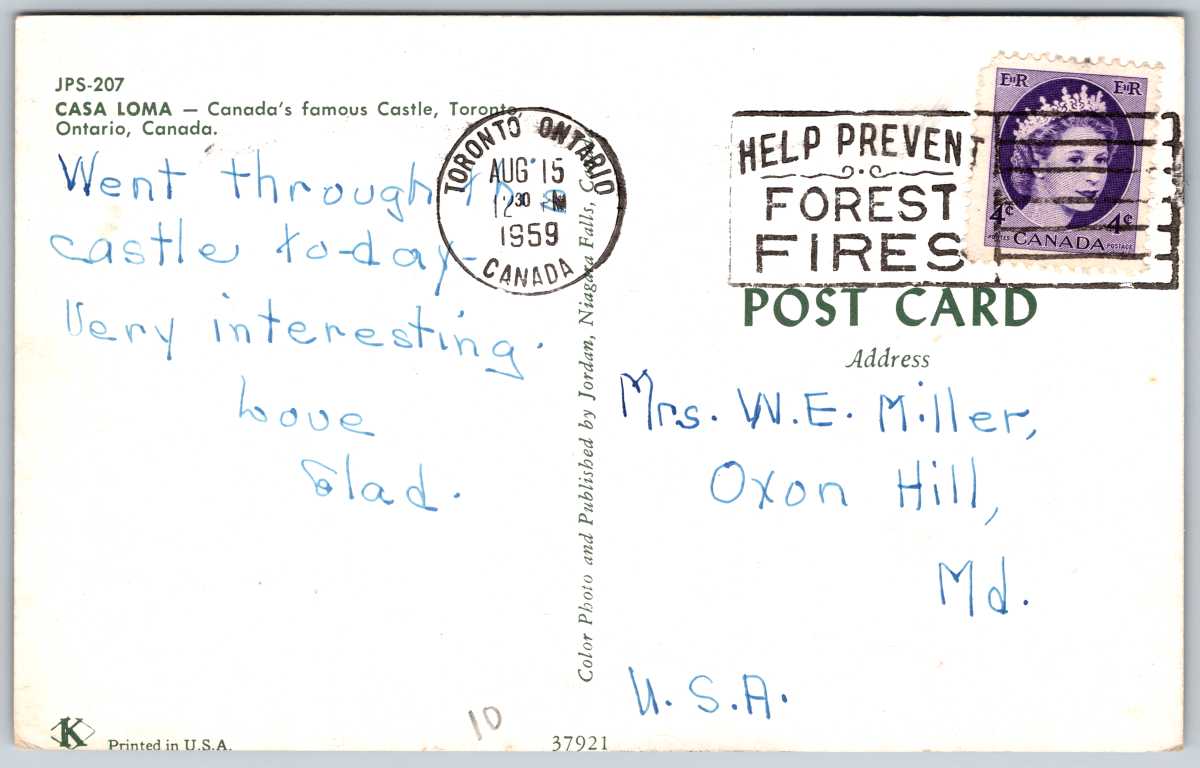 JPS-207
CASA LOMA — Canada's famous Castle, Toronto
Ontario, Canada.
Went through the
castle to-day-
Very interesting.
Love
Glad.
TORONTO ONTARIO
AUG 15
12 30 PM
1959
CANADA
Color Photo and Published by Jordan, Niagara Falls, C
HELP PREVENT
FOREST
FIRES
EIIR EIIR
4¢ 4¢
POSTES CANADA POSTAGE
POST CARD
Address
Mrs. W.E. Miller,
Oxon Hill,
Md.
U.S.A.
K
Printed in U.S.A.
10
37921